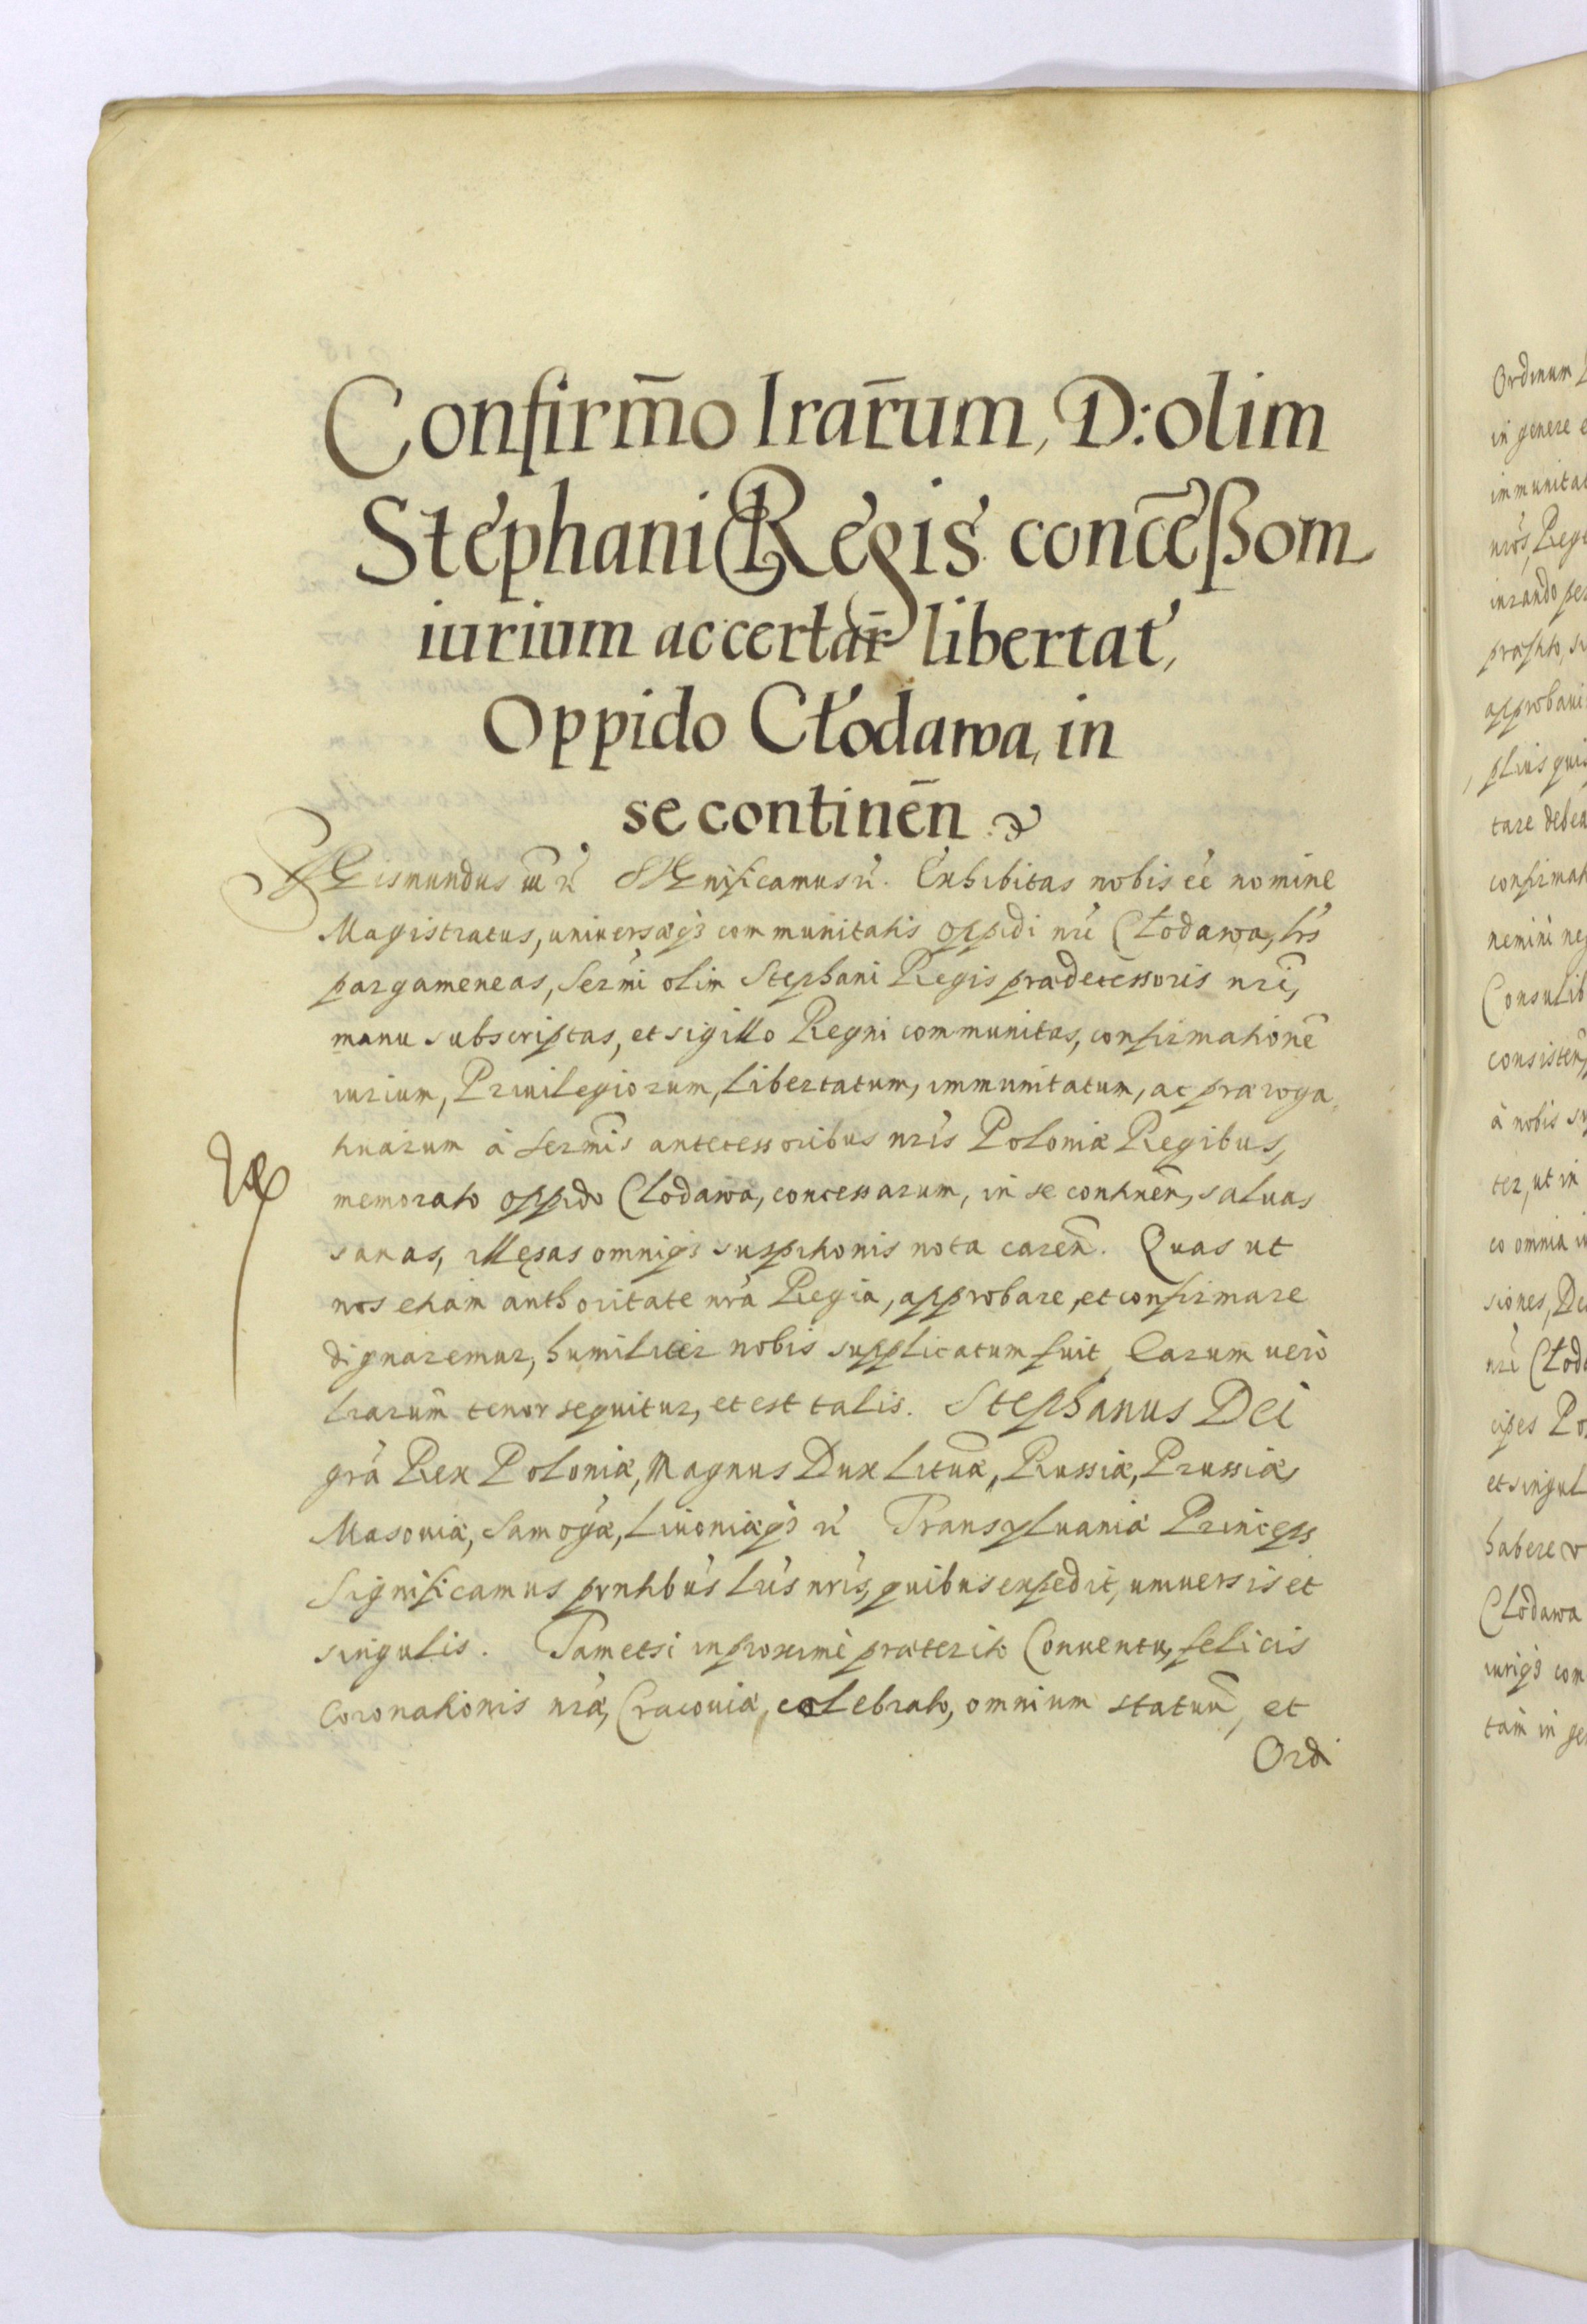 Confirm̄o lrar̄um, D: olim
Stephani Regis conc̄eßom
iurium ac certar̄ libertat,
Oppido Cłodawa, in
se continen̄
Sigismundus III etc̃ Significamus etc̃. Exhibitas nobis ee͂ nomine
Magistratus, universaeq3 communitatis oppidi nri͂ Cłodawa, lr̃s
pargameneas, Sermi͂ olim Stephani Regis praedecessoris nri͂,
manu subscriptas, et sigillo Regni communitas, confirmatione͂
iurium, Priuilegiorum, libertatum, immunitatum, ac praeroga,
tiuarum à Serm̃is antecessoribus nr̃is Poloniae Regibus,
memorato oppido Clodawa, concessarum, in se continen̄, saluas
sanas, illęsas omniq3 suspitionis nota caren̄. Quas ut
nos etiam authoritate nr̃a Regia, approbare, et confirmare
dignaremur, humiliter nobis supplicatum fuit Earum uerò
lrarum̃ tenor sequitur, et est talis. Stephanus Dei
gr̃a Rex Poloniae, Magnus Dux Lituae͂, Russiae, Prussiae,
Masouiae, Samog̃ae, Liuoniaeq3 etc̃ Transyluaniae Princeps
Significamus pr̃ntibus lr̃is nr̃is, quibus expedit, uniuersis et
singulis. Tametsi in proximè praeterito Conuentu, felicis
Coronationis nr̃ae, Cracouiae, celebrato, omnium statuu͂, et
Ordi
Ordinum
in genere
nros, Rege
tare debea
Consulib
consisten̄
à nobis
ter, ut in
co omnia
siones, De
nri͂ Cłod
et singul
habere
Clodawa
iuriq3 com
tam in ge